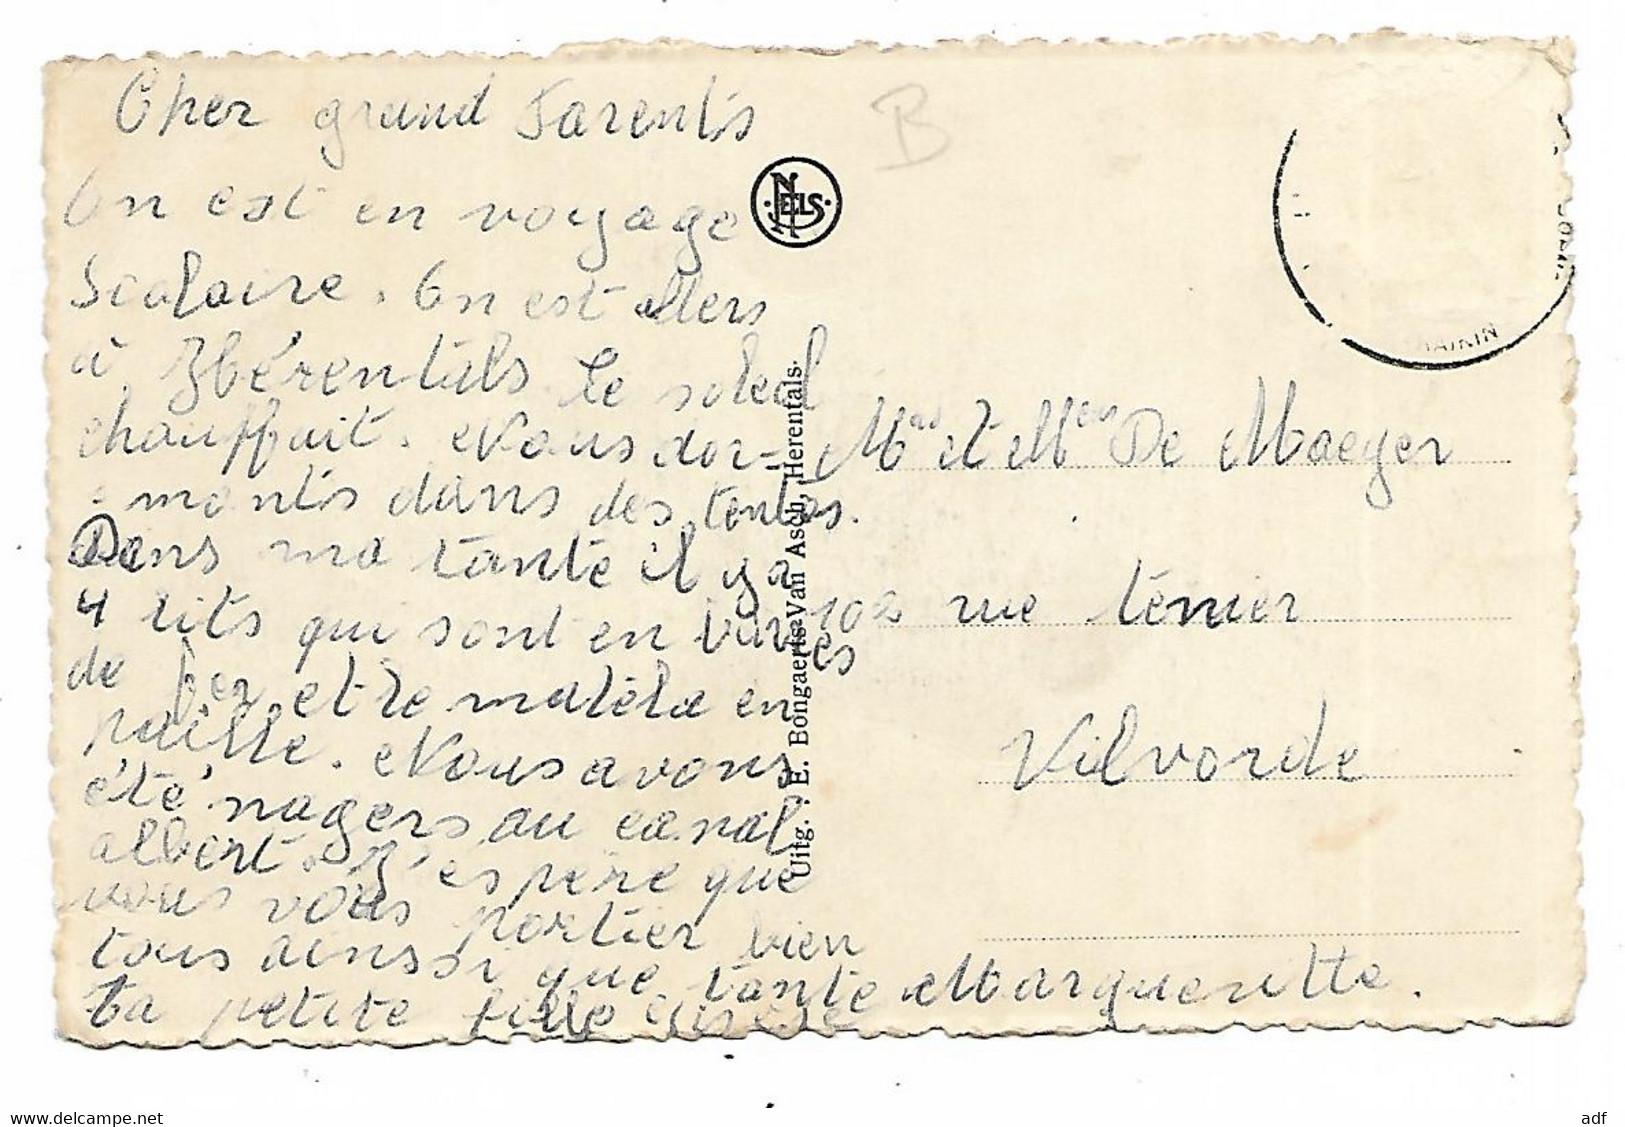 Cher grand Parents
On est en voyage
Scolaire. On est allers
à Hérentals le soleal
chauffait. Nous dor-
montis dans des tentes.
Dans ma tante il ya
4 lits qui sont en barres
de fer et le matela en
paille. Nous avons
été nagers au canal
albert. J'espère que
vous vous portier bien
tous ainssi que tante Marguerutte.
ta petite fille
B
NELS
Uitg. : E. Bongaerts-Van Asch, Herentals.
Mr et Mme De Maeyer
102 rue ténier
Vilvorde
delcampe.net
adf